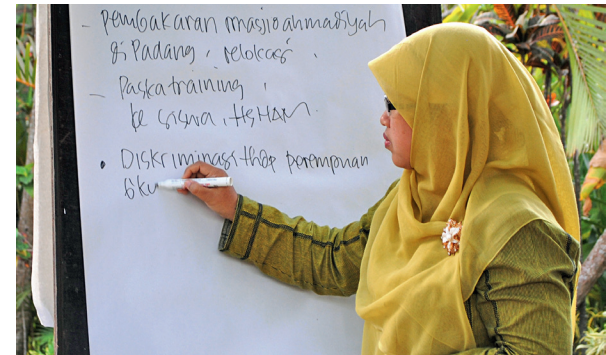 - Pembakaran masjid ahmadiyah
di Padang, relokasi.
- Paska training,
ke siswa, HAM.
• Diskriminasi thdp perempuan